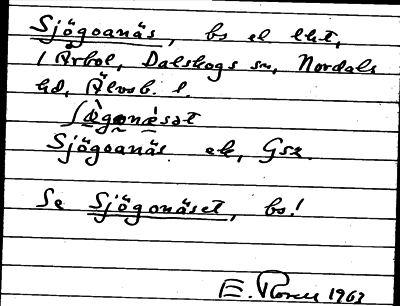 Sjögoanäs, bs el. lht,
i Årbol, Dalskogs sn, Nordals
hd, Älvsb. l.
Sjögoanäs ek, Gsk.
Se Sjögonäset, bs!
E. 1963